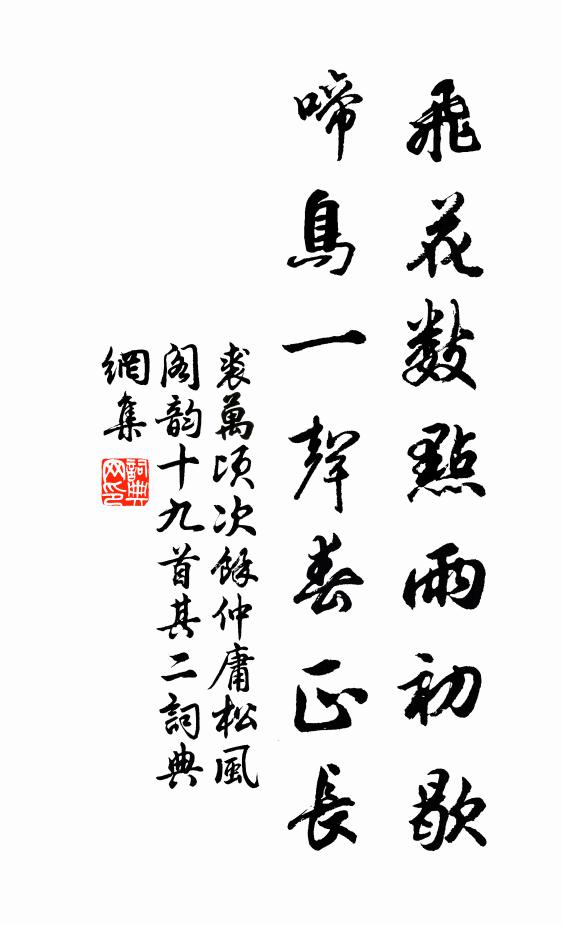 飛花數點雨初歇
啼鳥一聲春正長
裘萬頃次餘仲庸松風
閣韵十九首其二詞典
網集
詞典
网印